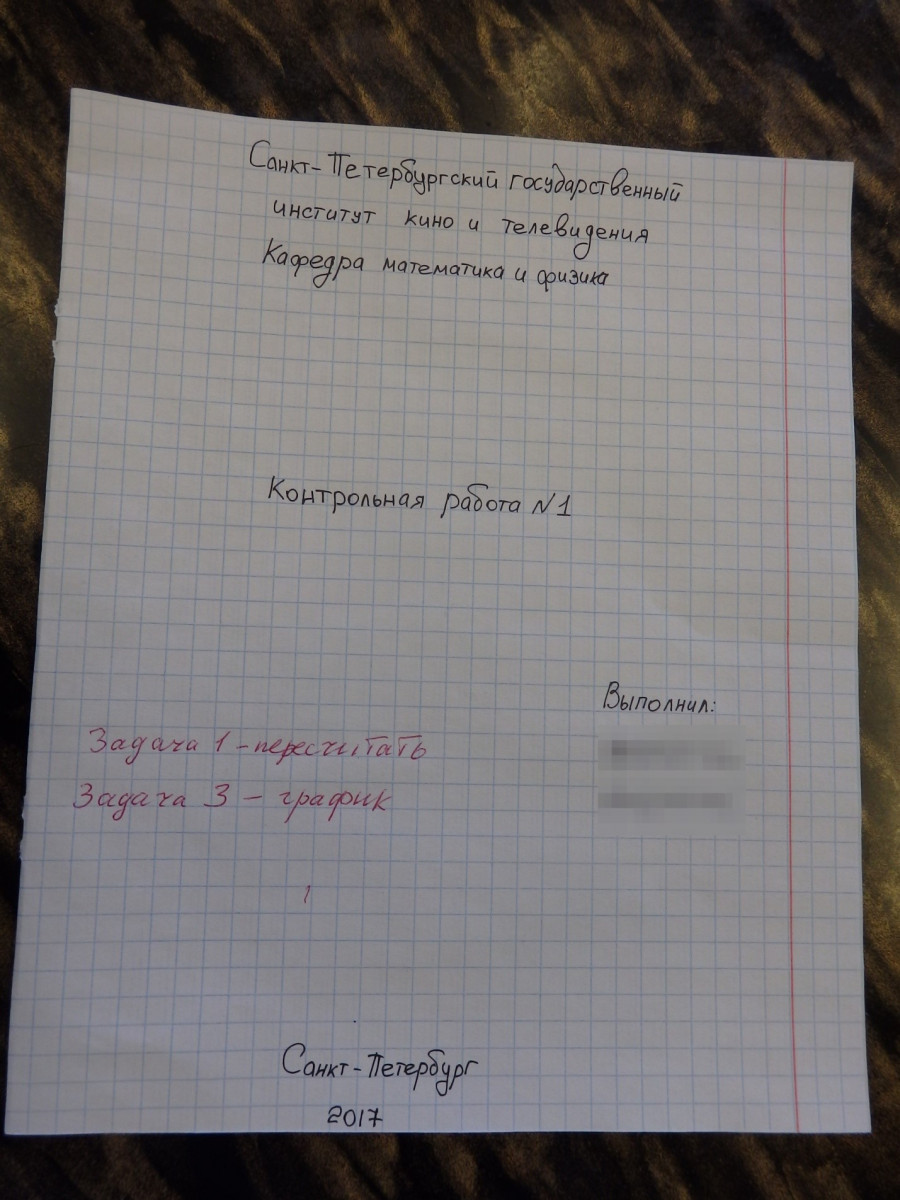 Санкт-Петербургский государственный
институт кино и телевидения
Кафедра математика и физика
Контрольная работа N1
Выполнил:
Задача 1 - пересчитать
Задача 3 - график
Санкт-Петербург
2017